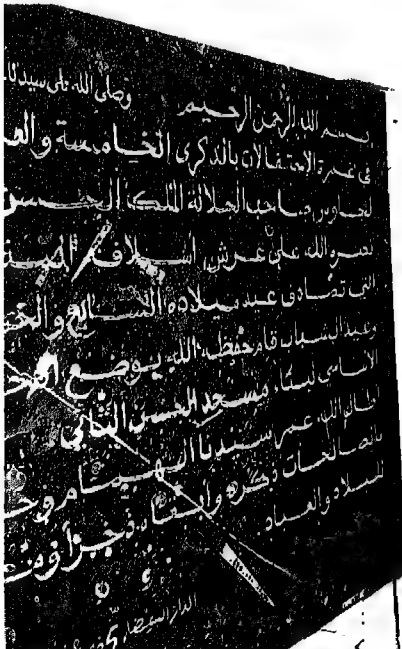 بسم الله الرحمن الرحيم وصلى الله على سيدنا
في غمرة الاحتفالات بالذكرى الخامسة والعـ
لجلوس صاحب الجلالة الملك الحسن
نصره الله على عرش أسلافه
التي تصادف عيد ميلاده السابع والخمـ
وعيد الشباب قام حفظه الله بوضع الحجـ
الأساسي لبناء مسجد الحسن الثاني
أطال الله عمر سيدنا الهمام و
بالصالحات ذكره وأبقاه
للبلاد والعباد
الدار البيضاء 5